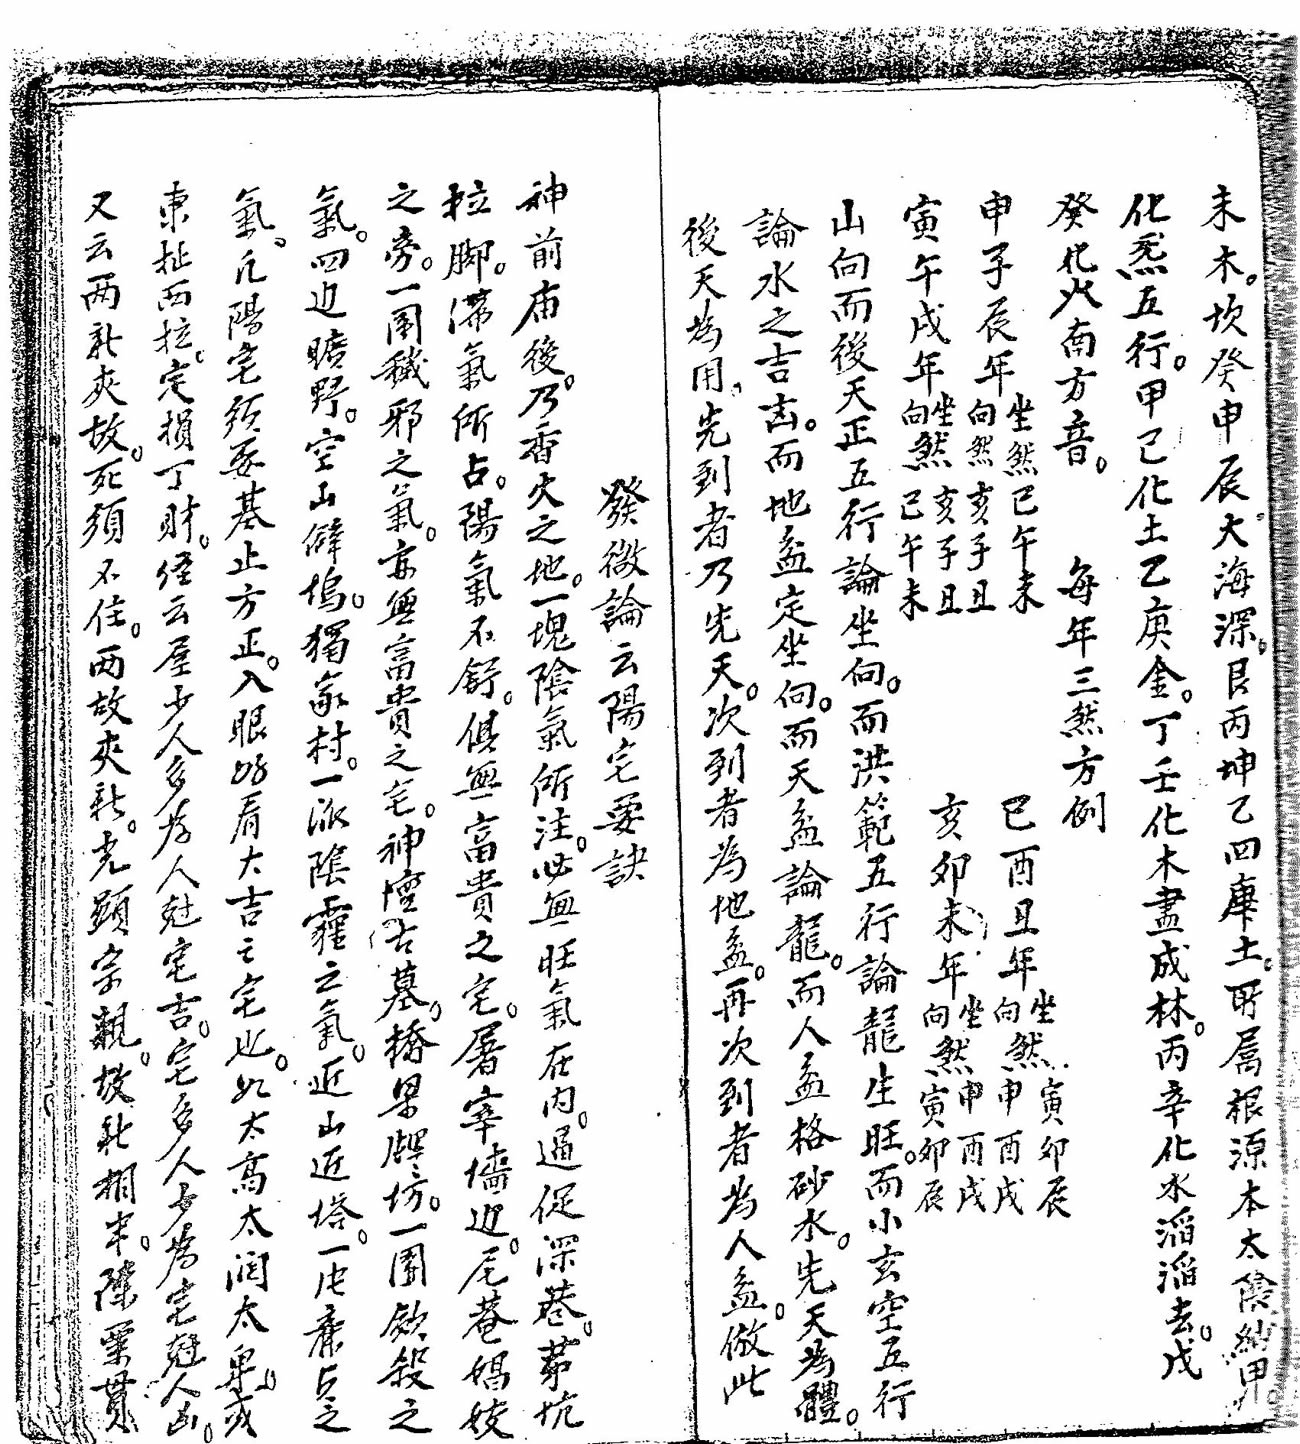 未木。坎癸申辰。大海深。艮丙坤乙四庫土。所屬根源本太陰納甲。
化炁五行。甲己化土乙庚金。丁壬化木盡成林。丙辛化水滔滔去。戊
癸化火南方音。 每年三煞方例
申子辰年坐煞巳午未向煞亥子丑 巳酉丑年坐煞寅卯辰向煞申酉戌
寅午戌年坐煞亥子丑向煞巳午未 亥卯未年坐煞申酉戌向煞寅卯辰
山向而後天正五行論坐向。而洪範五行論龍生旺。而小玄空五行
論水之吉凶。而地盆定坐向。而天盆論龍。而人盆格砂水。先天為體。
後天為用。先到者乃先天。次到者為地盆。再次到者為人盆。倣此
發微論云陽宅要訣
神前庙後。乃香火之地。一塊陰氣所注。必無旺氣在内。逼促深巷。茅坑
拉脚。滞氣所占。陽氣不舒。俱無富貴之宅。屠宰墻迎。尼菴娼妓
之旁。一團穢邪之氣。亦無富貴之宅。神壇古墓。橋梁牌坊。一團殺之
氣。四迎曠野。空山僻塢。獨家村。一派陰霾之氣。近山近塔。一片廉貞之
氣。凡陽宅須要基止方正。入眼好看大吉之宅也。如太高太阔太卑。或
東扯西拉。定損丁財。經云屋少人多为人尅宅吉。宅多人少为宅尅人凶。
又云兩新夾故。死須不住。兩故夾新。光顯宗親。故新相半。陳粟貫